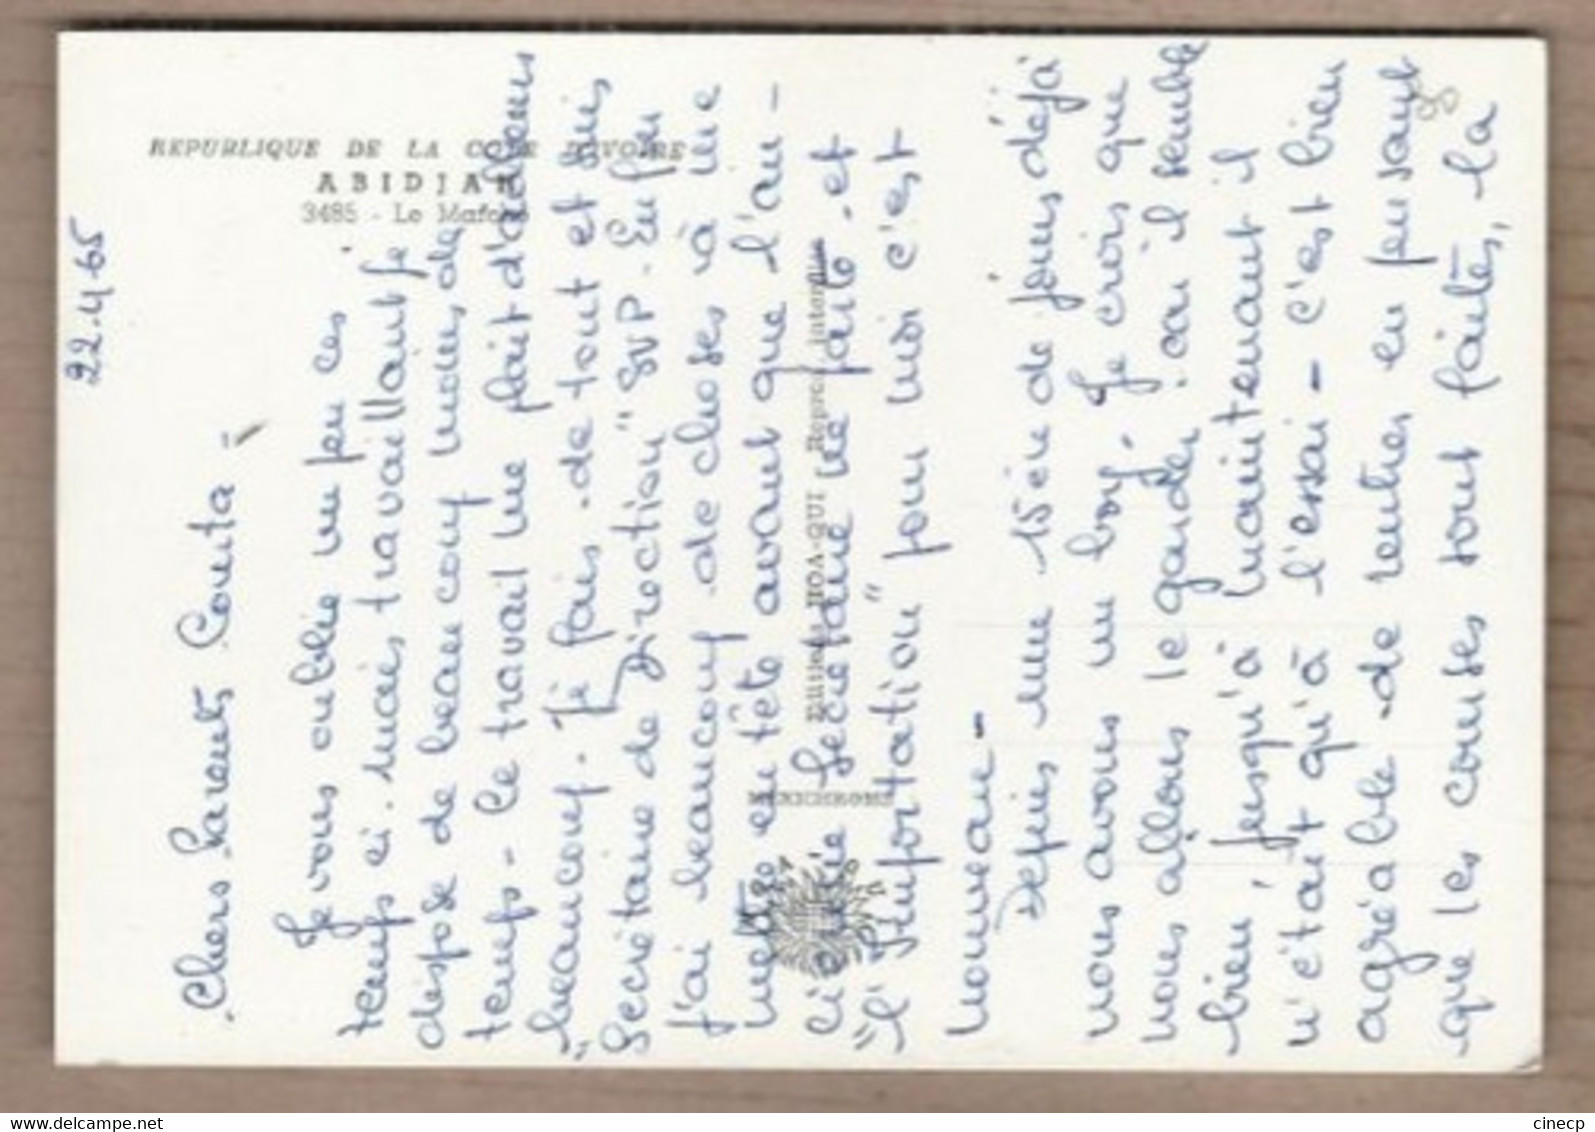 22.4.65
Chers Parents Couta -
Je vous oublie un peu ces
temps ci. mais travaillant je
dispose de beaucoup moins de
temps - Le travail me plait d'ailleurs
beaucoup. Je fais de tout et suis
"Secrétaire de Direction" SVP. Enfin
j'ai beaucoup de choses à me
mettre en tête avant que l'au-
Secrétaire ne parte - et
"l'Importation" pour moi c'est
nouveau -
Depuis une 15ène de jours déjà
nous avons un boy - Je crois que
nous allons le garder car il semble
bien, jusqu'à maintenant il
n'était qu'à l'essai - c'est bien
agréable de rentrer en pensant
que les courses sont faites, la
REPUBLIQUE DE LA COTE D'IVOIRE
ABIDJAN
3485 - Le Marché
Edition HOA-QUI
MEXICHROME
cinecp